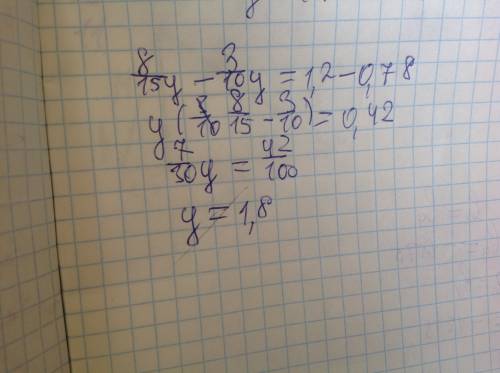 8/15 y − 3/10 y = 1,2 − 0,78
y (3/10 8/15 − 3/10) = 0,42
7/30 y = 42/100
y = 1,8